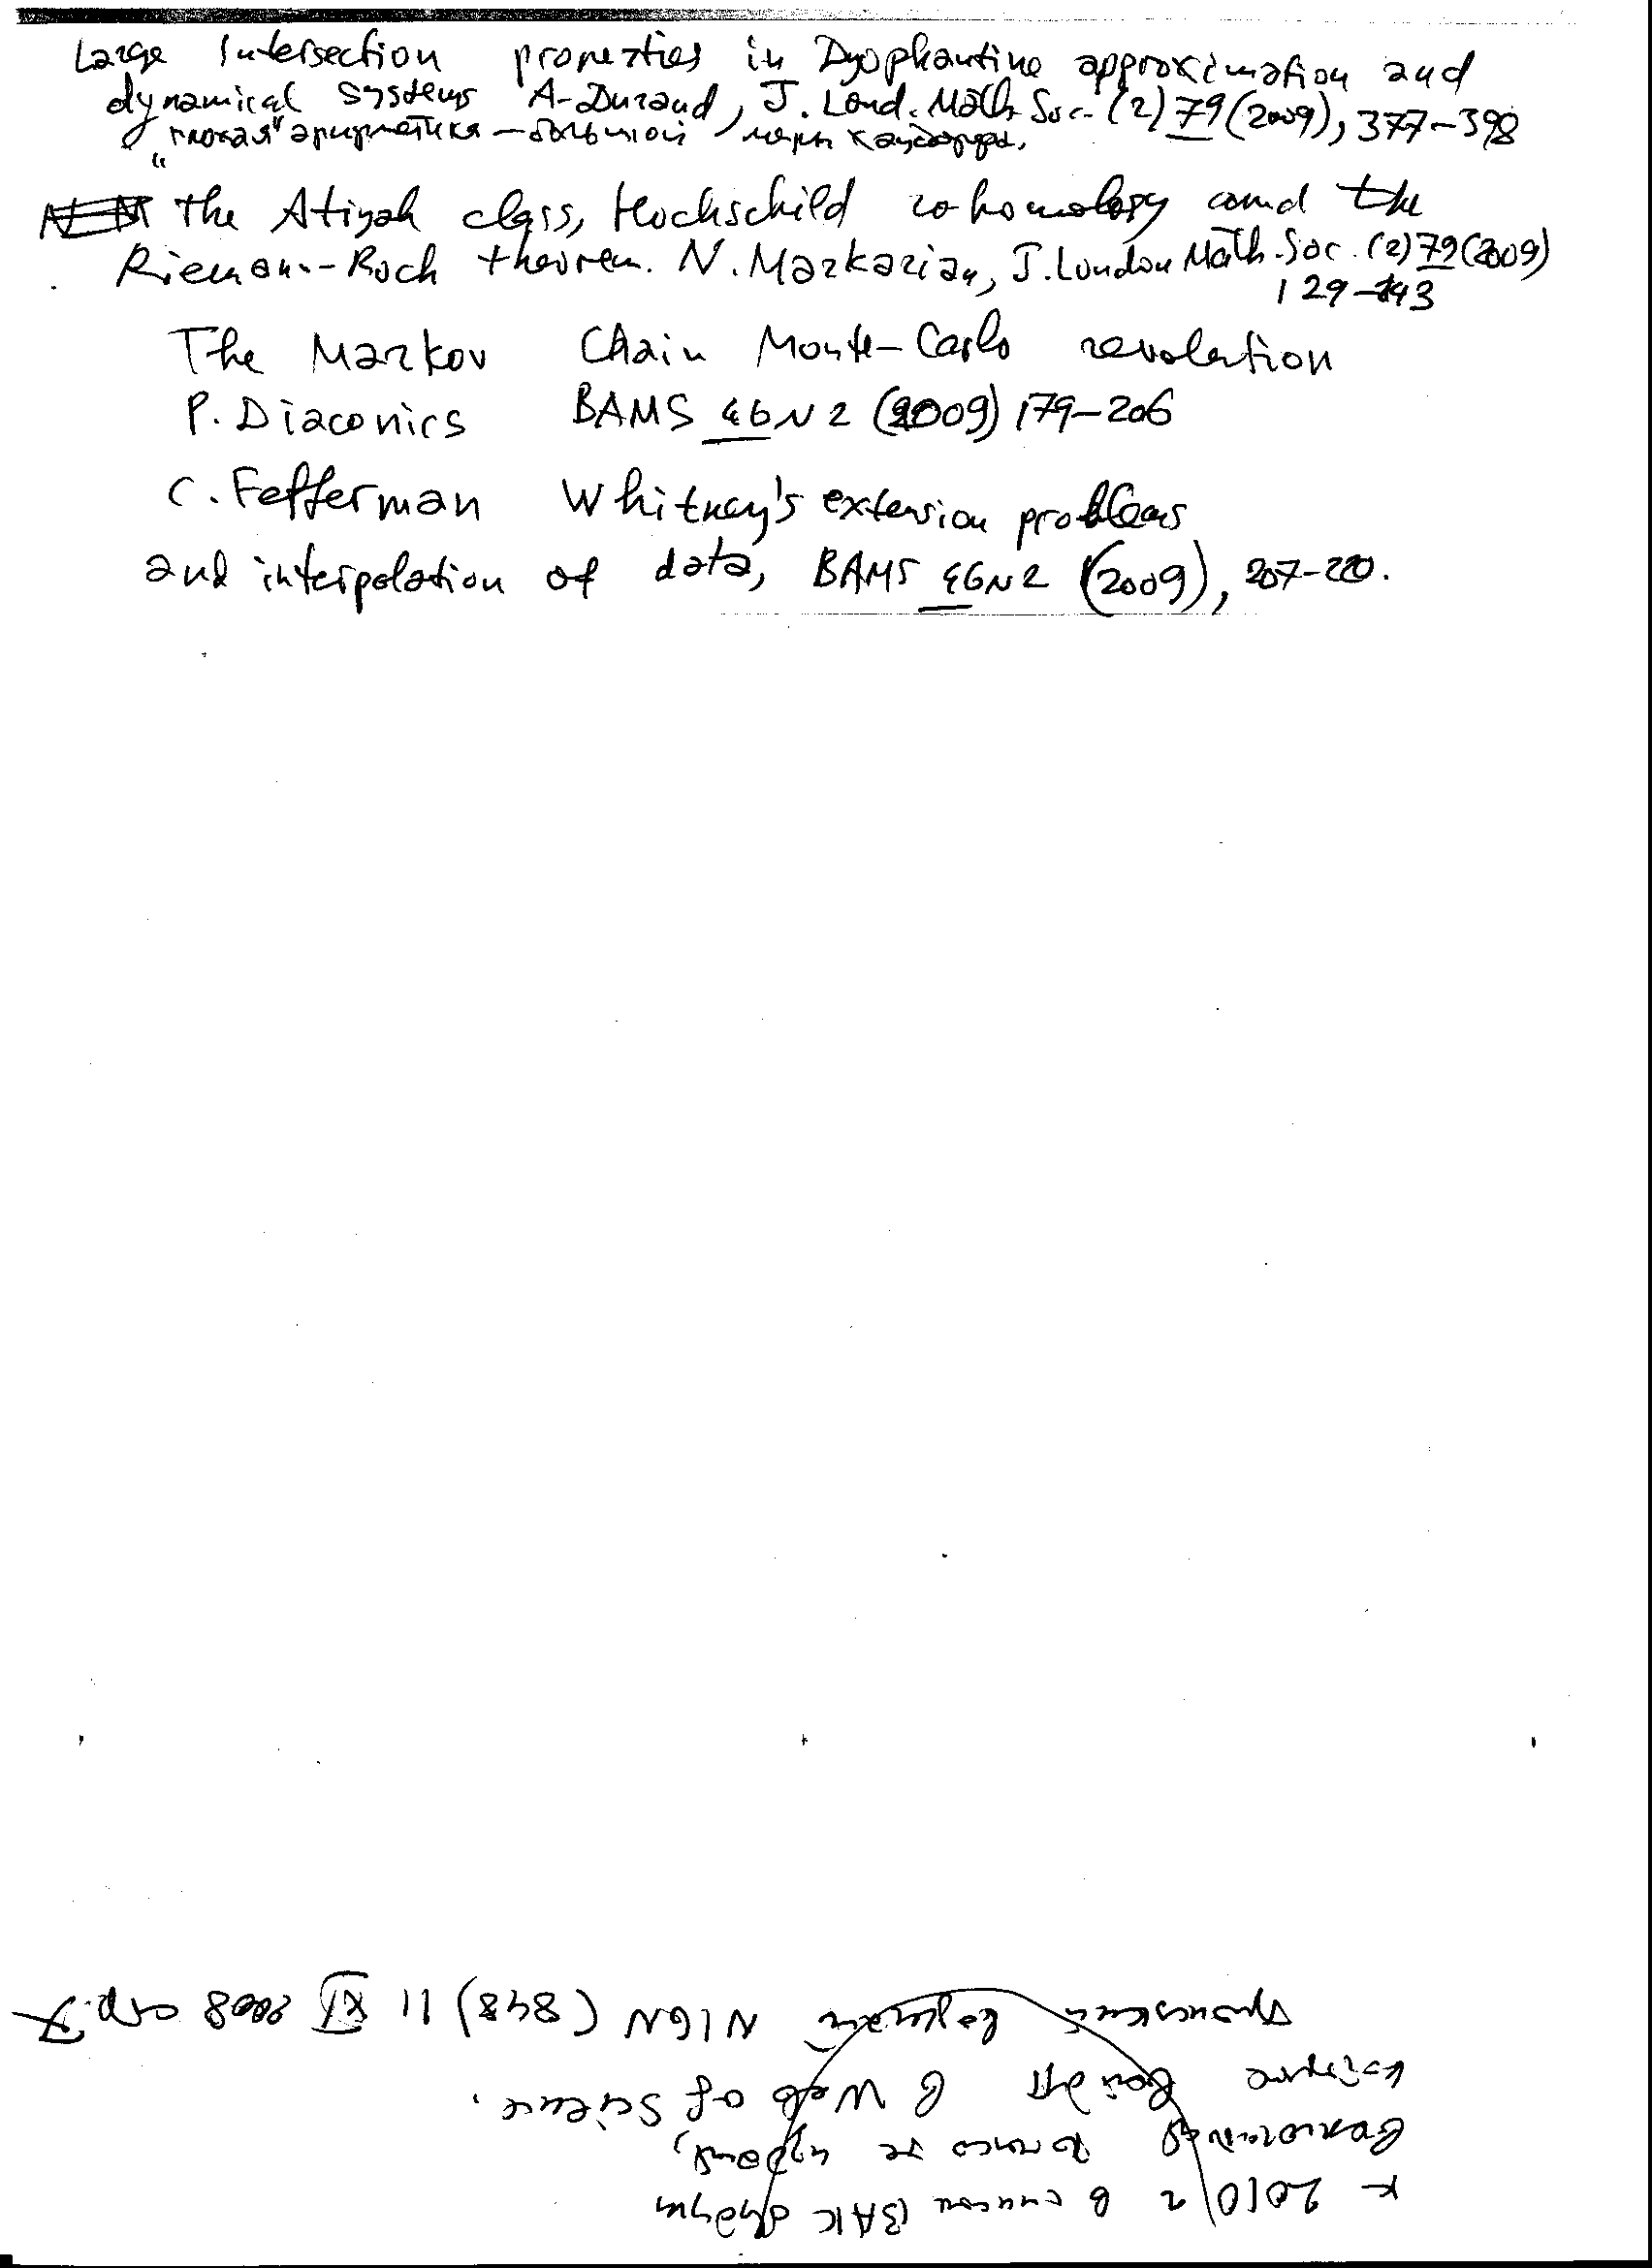 Large Intersection properties in Dyophantine approximation and
dynamical systems A. Durand, J. Lond. Math. Soc. (2) 79 (2009), 377-398
"плохая" арифметика — большой меры Хаусдорфа.
The Atiyah class, Hochschild cohomology and the
Riemann-Roch theorem. N. Markarian, J. London Math. Soc. (2) 79 (2009)
129-143
The Markov Chain Monte-Carlo revolution
P. Diaconics BAMS 46 N 2 (2009) 179-206
C. Fefferman Whitney's extension problems
and interpolation of data, BAMS 46 N 2 (2009), 207-220.
К 2010 г в список ВАК будут
включаться только те журналы,
которые войдут в Web of Science.
Троицкий вариант N16N (848) 11 XI 2008 стр. 7